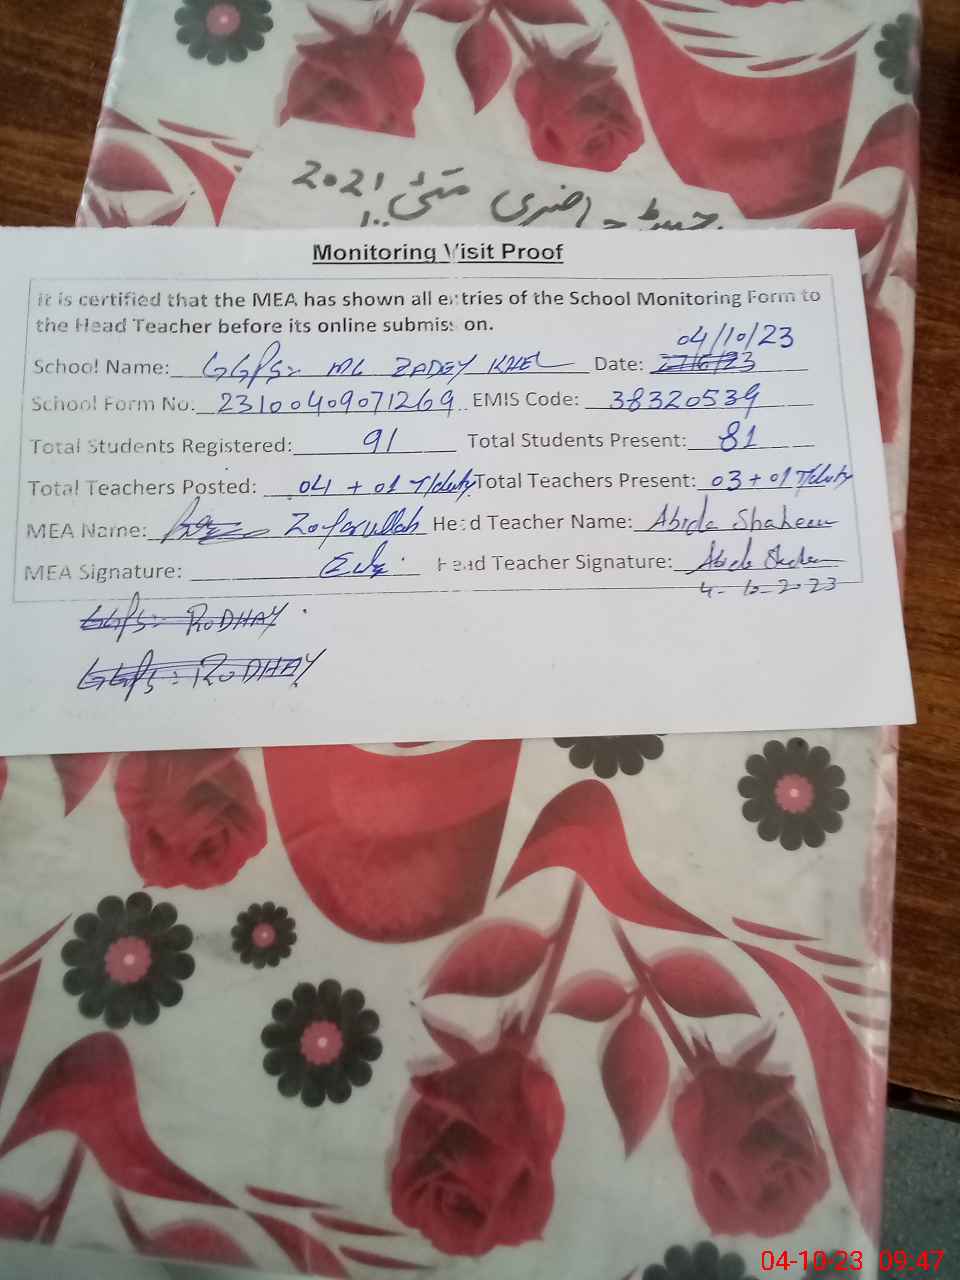 رجسٹر حاضری مئی 2021
Monitoring Visit Proof
It is certified that the MEA has shown all entries of the School Monitoring Form to
the Head Teacher before its online submission.
04/10/23
School Name: GGPS: MC ZADEY KHEL Date: 27/6/23
School Form No: 23100409071269 EMIS Code: 38320539
Total Students Registered: 91 Total Students Present: 81
Total Teachers Posted: 04 + 01 T/duty Total Teachers Present: 03 + 01 T/duty
MEA Name: Zafarullah Head Teacher Name: Abida Shaheen
MEA Signature: Head Teacher Signature: Abida Shaheen
4-10-2023
GGPS: RODHAY
GGPS: RODHAY
04-10-23 09:47